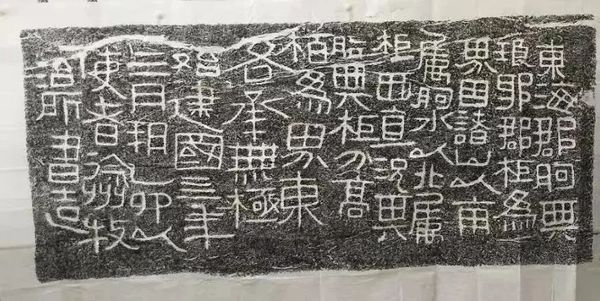 東海郡朐與
琅邪郡柜為
界因諸山以南
屬朐水以北屬
柜西直況其
朐與柜分高
為界東
各承無極
始建國亖年
亖月朔乙卯以
使者徐州牧
治所書造